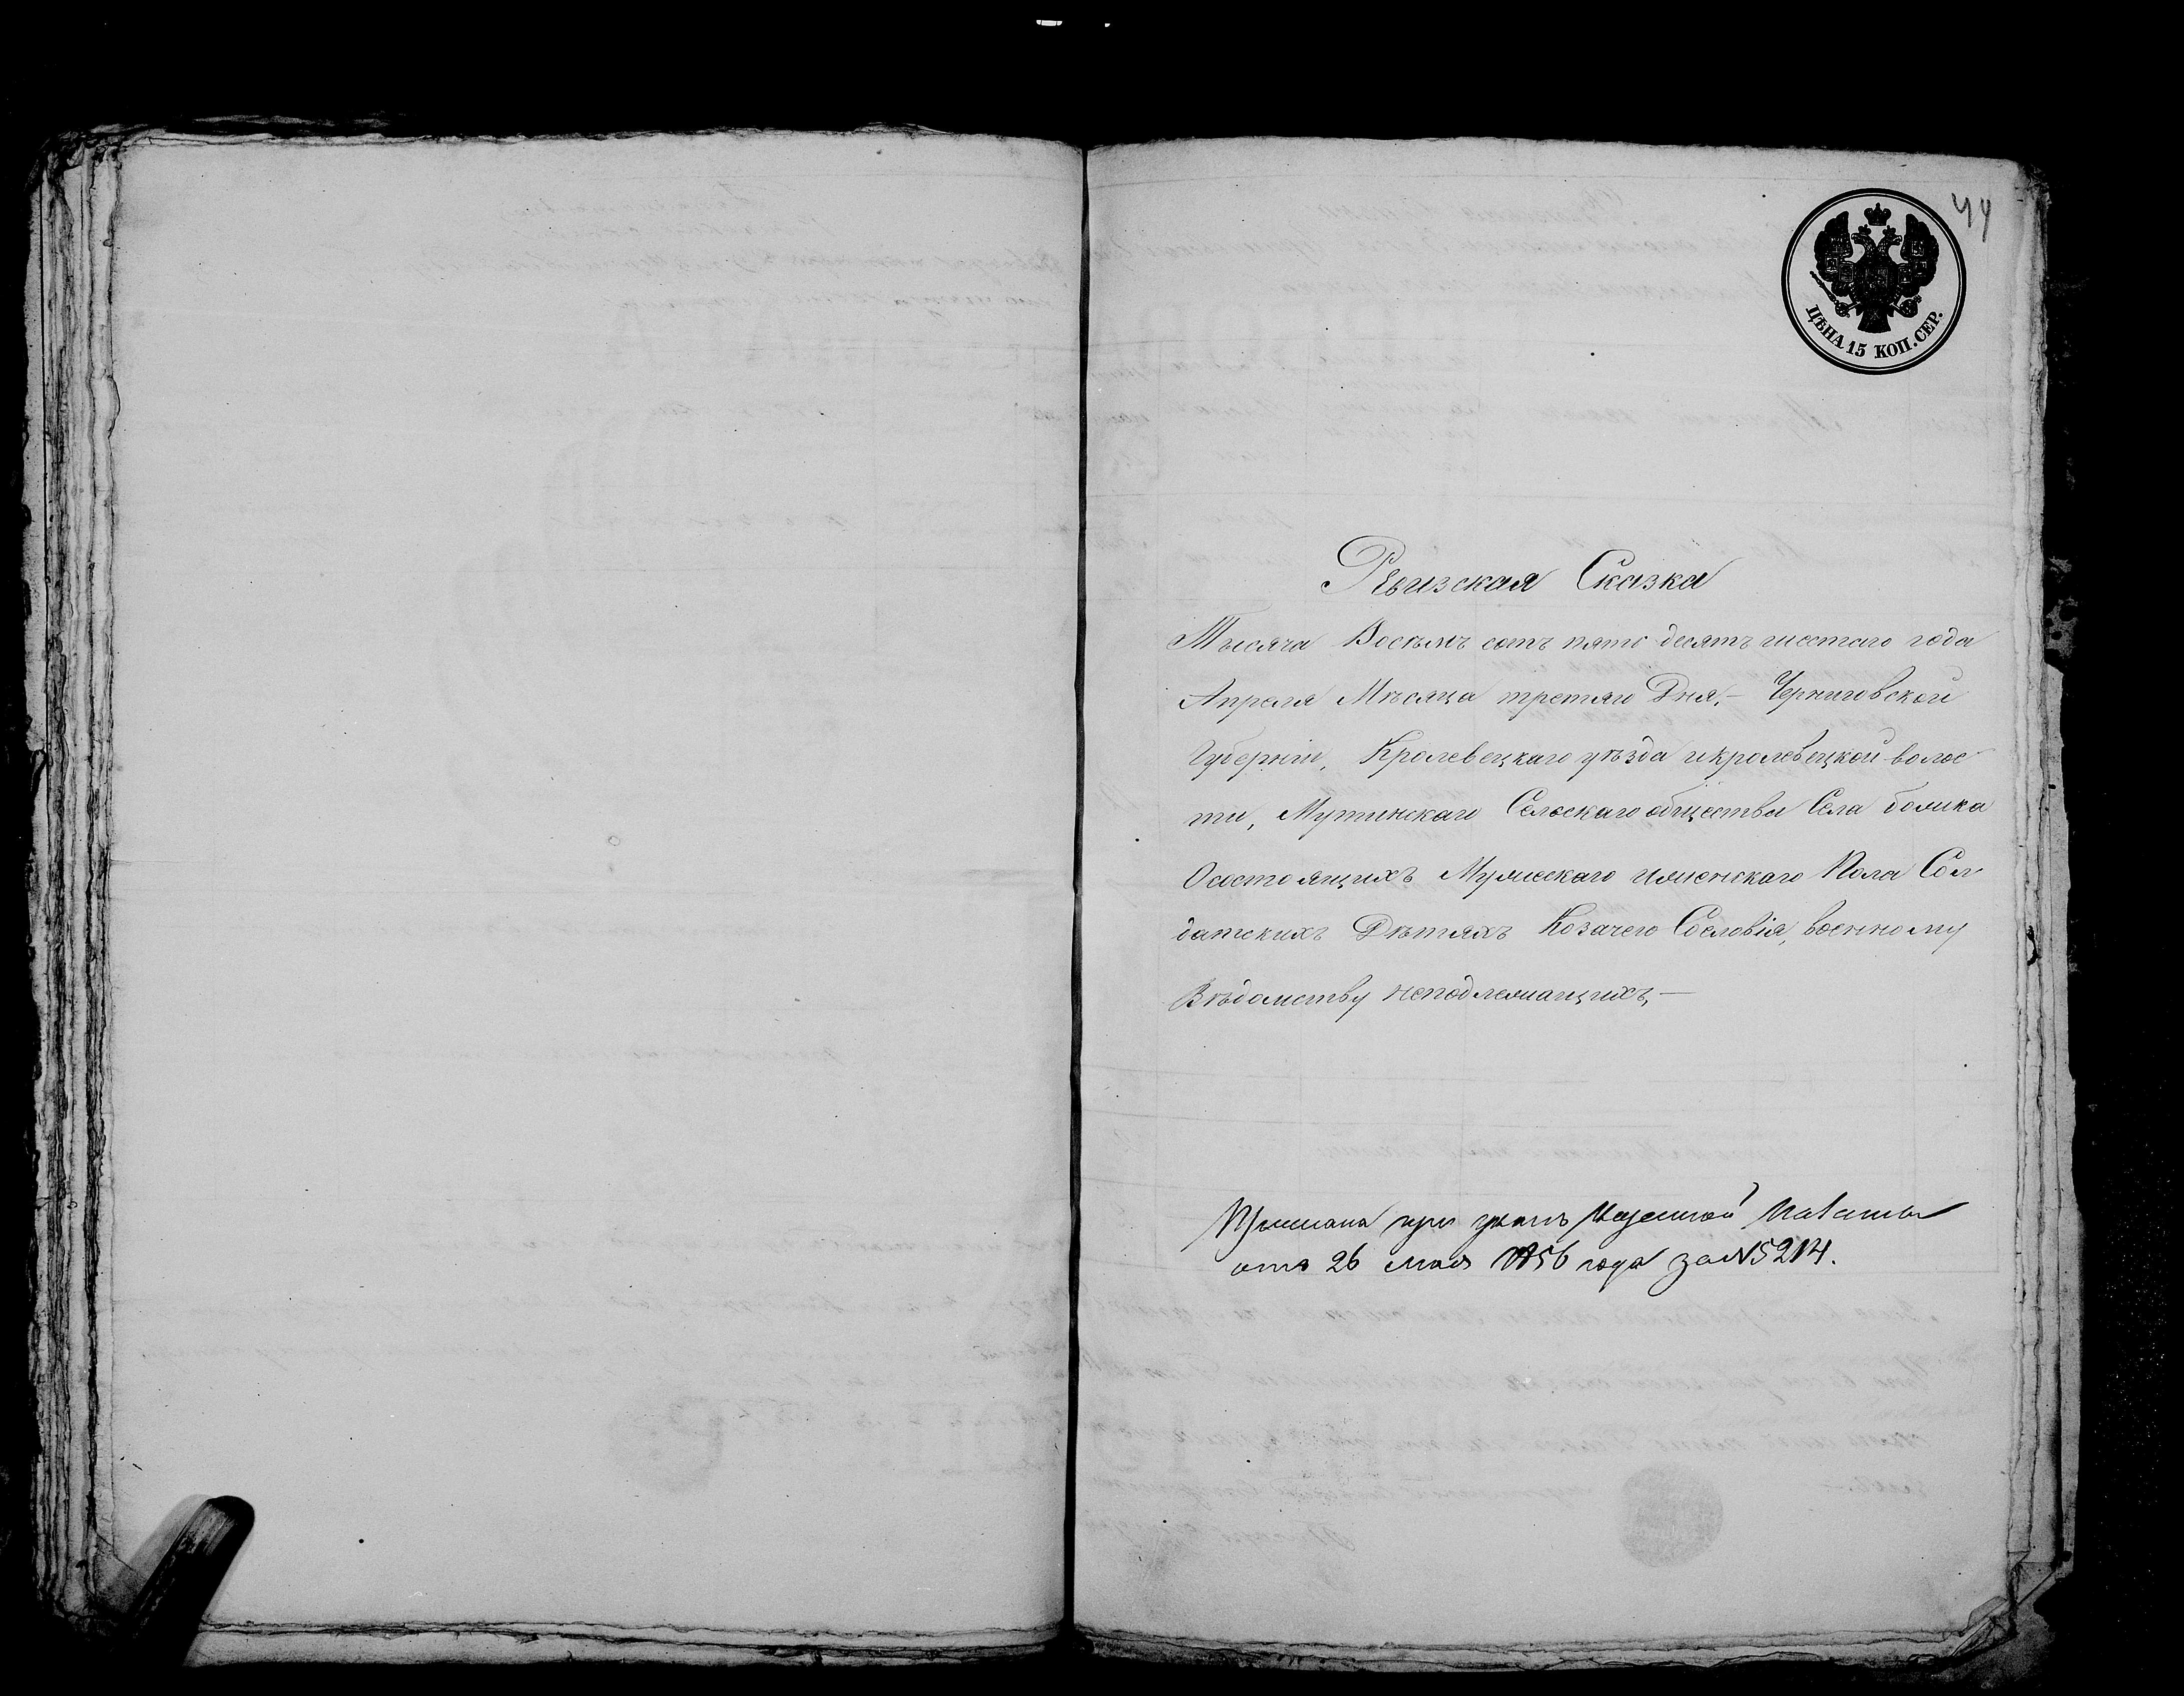 44
ЦѢНА 15 КОП. СЕР.
Ревизская Сказка
Тысяча Восемъ сотъ пять десятъ шестаго года
Апреля Мѣсяца третяго Дня,– Черниговской
Губерніи, Кролевецкаго уѣзда икролевецкой волос
ти, Мутинскаго Сельскаго общества Села
Осостоящихъ Мужескаго иженскаго Пола Сол
датскихъ Дѣтяхъ Козачего Сословія, военному
Вѣдомству неподлежащихъ,–
при указѣ Казенной Палаты
отъ 26 мая 1856 года за N5214.